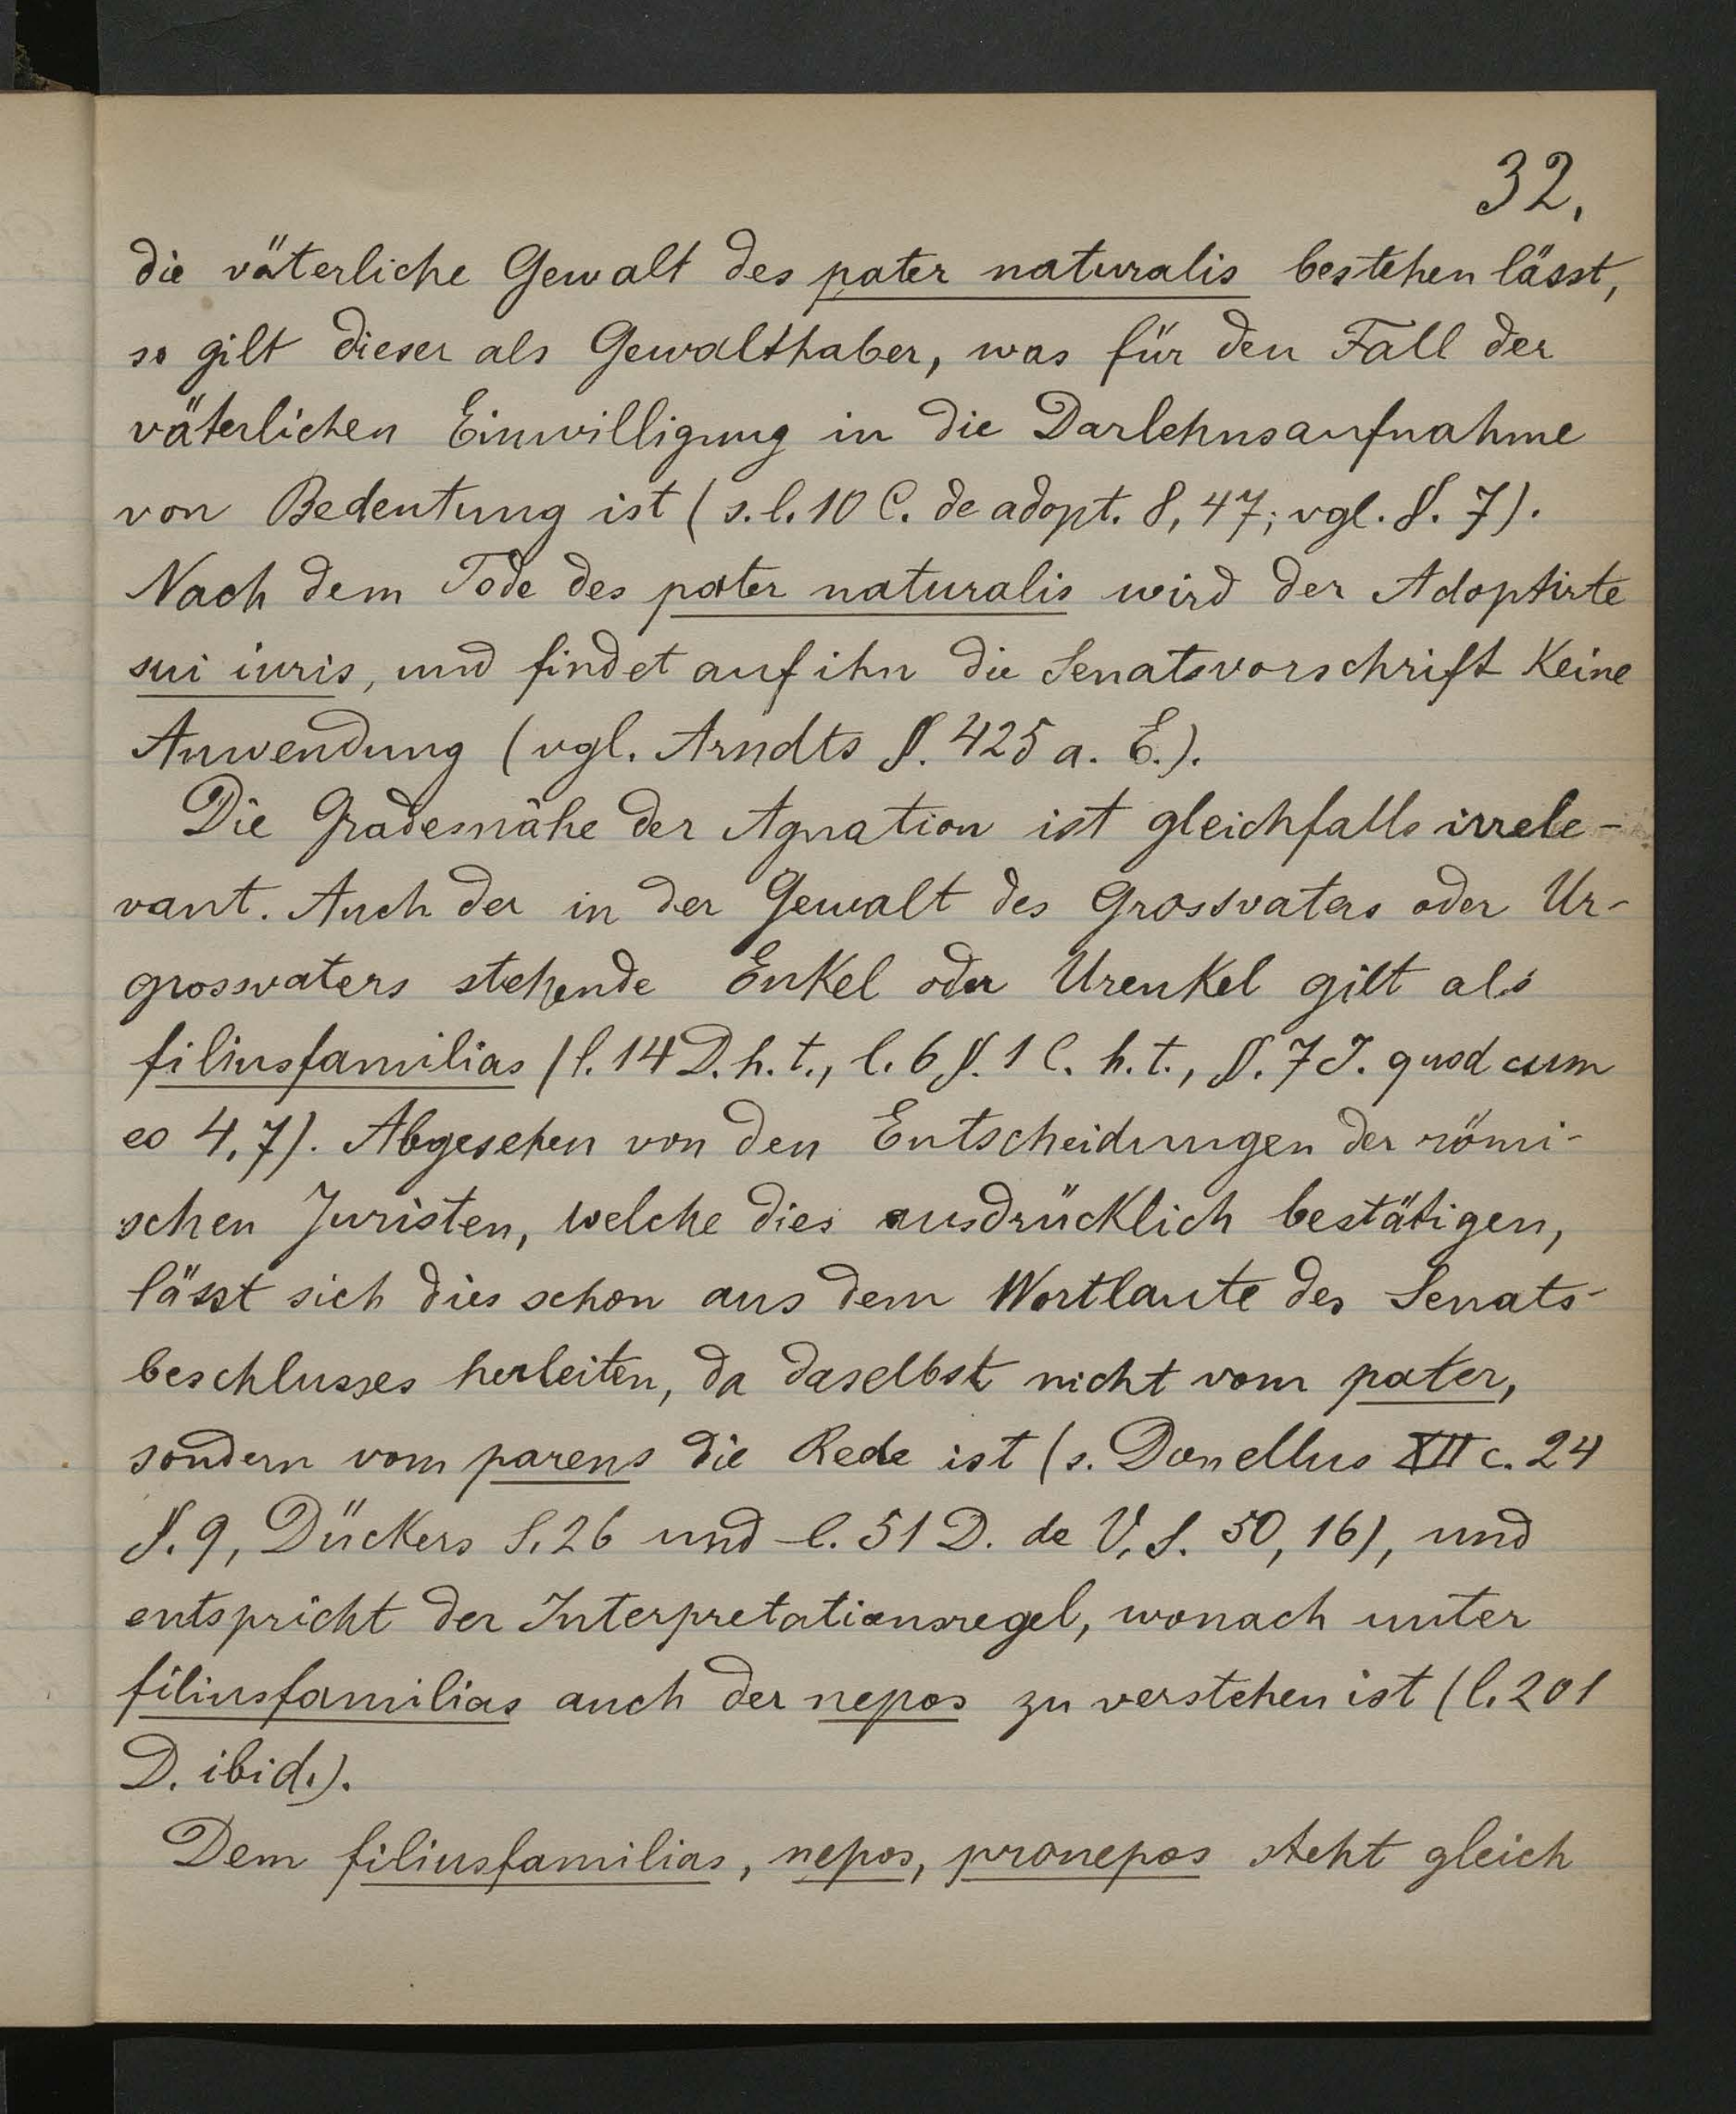 32.
die väterliche Gewalt des pater naturalis bestehen lässt,
so gilt dieser als Gewalthaber, was für den Fall der
väterlichen Einwilligung in die Darlehnsaufnahme
von Bedeutung ist (s. l. 10 C. de adopt. 8, 47; vgl. §. 7).
Nach dem Tode des pater naturalis wird der Adoptirte
sui iuris, und findet auf ihn die Senatsvorschrift keine
Anwendung (vgl. Arndts §. 425 a. E.).
Die Gradesnähe der Agnation ist gleichfalls irrele-
vant. Auch der in der Gewalt des Grossvaters oder Ur-
grossvaters stehende Enkel oder Urenkel gilt als
filiusfamilias (l. 14 D. h. t., l. 6 §. 1 C. h. t., §. 7 J. quod cum
eo 4, 7). Abgesehen von den Entscheidungen der römi-
schen Juristen, welche dies ausdrücklich bestätigen,
lässt sich dies schon aus dem Wortlaute des Senats-
beschlusses herleiten, da daselbst nicht vom pater,
sondern vom parens die Rede ist (s. Donellus XII c. 24
§. 9, Dückers S. 26 und l. 51 D. de V. S. 50, 16), und
entspricht der Interpretationsregel, wonach unter
filiusfamilias auch der nepos zu verstehen ist (l. 201
D. ibid.).
Dem filiusfamilias, nepos, pronepos steht gleich